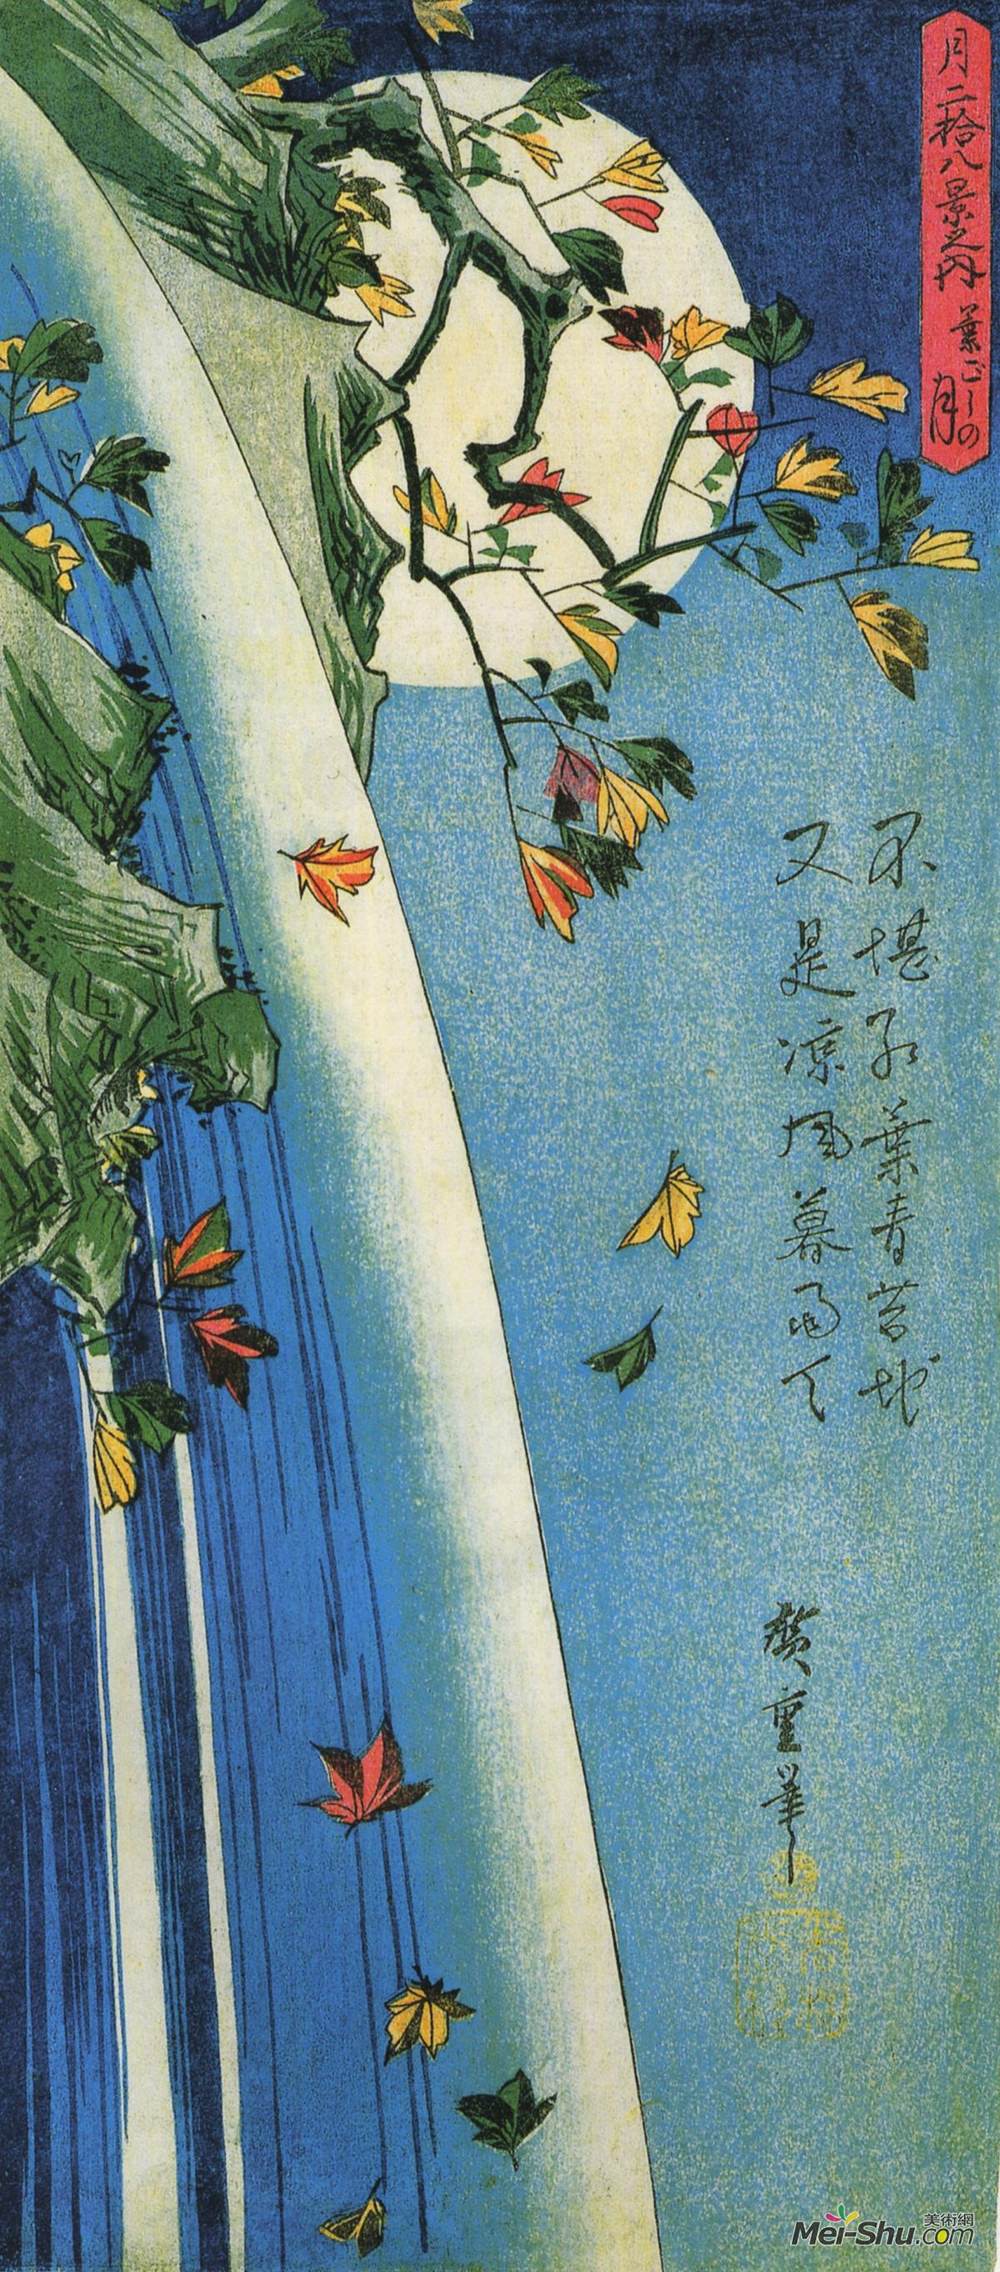 月二拾八景之内 葉ごしの月
不堪红葉青苔地
又是凉風暮雨天
廣重筆
美術網
Mei-Shu.com